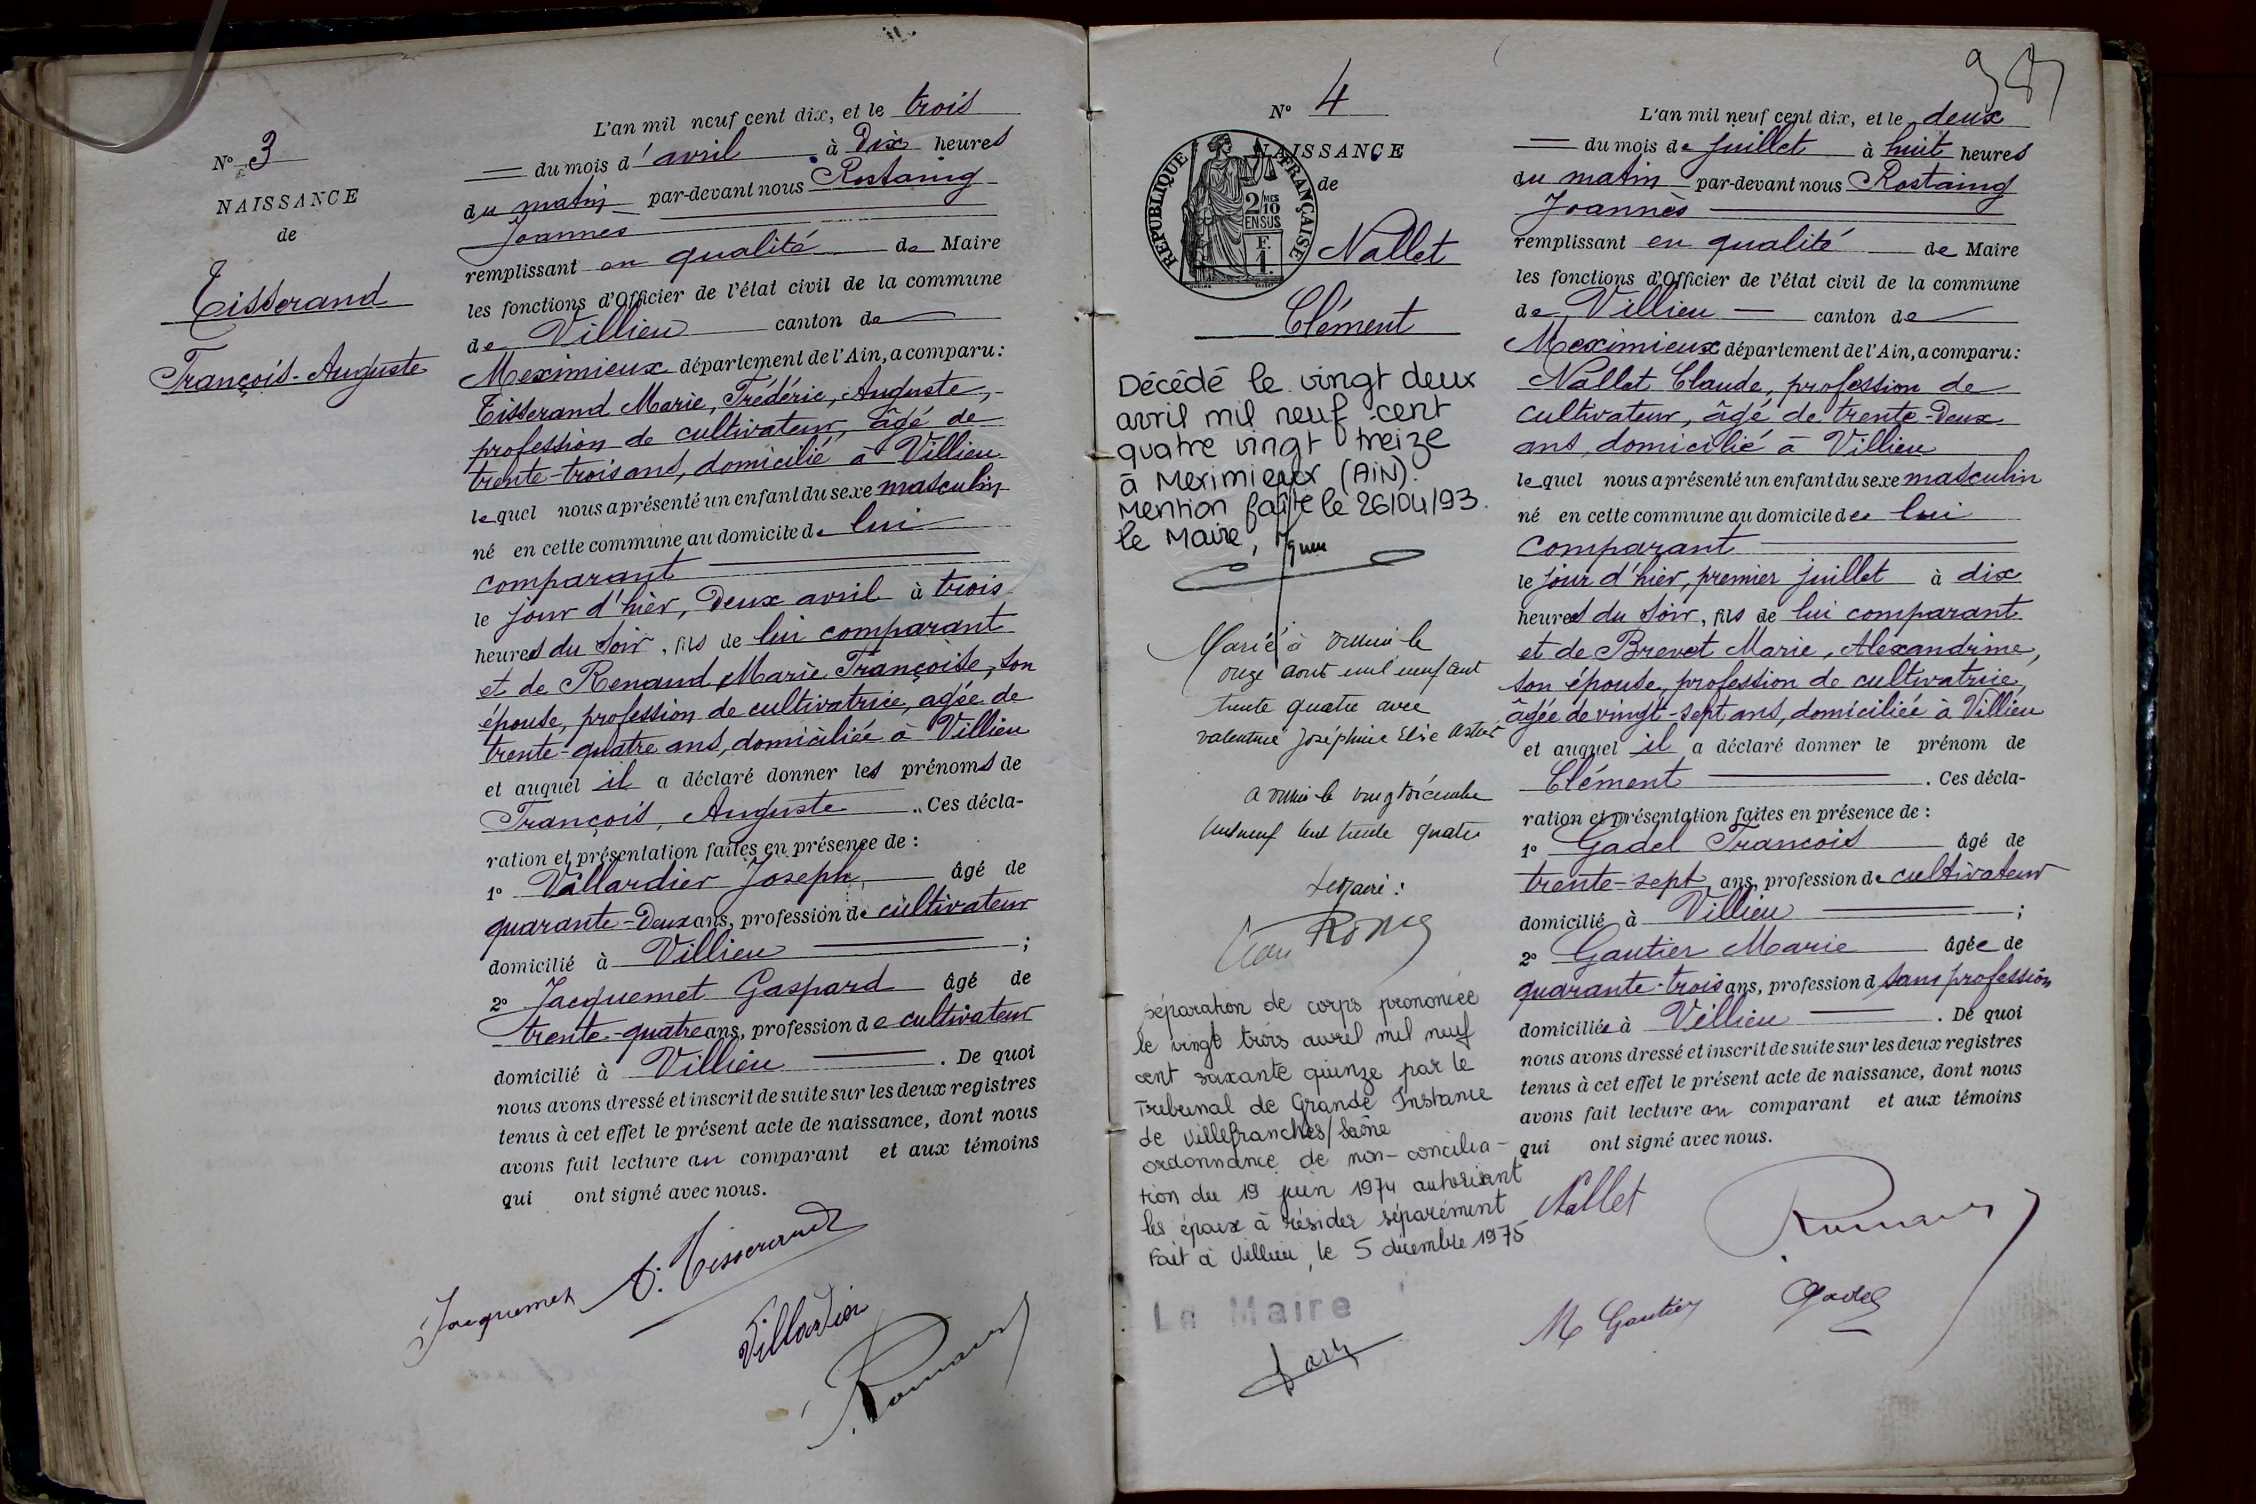 N° 3
NAISSANCE
de
Tisserand
François-Auguste
L'an mil neuf cent dix, et le trois
du mois d'avril à Dix heures
du matin par-devant nous Rostaing
Joannès
remplissant en qualité de Maire
les fonctions d'Officier de l'état civil de la commune
de Villieu canton de
Meximieux département de l'Ain, a comparu:
Tisserand Marie, Frédéric, Auguste,
profession de cultivateur, âgé de
trente-trois ans, domicilié à Villieu
lequel nous a présenté un enfant du sexe masculin
né en cette commune au domicile de lui
comparant
le jour d'hier, Deux avril à trois
heures du soir, fils de lui comparant
et de Renaud, Marie Françoise, son
épouse, profession de cultivatrice, agée de
trente-quatre ans, domiciliée à Villieu
et auquel il a déclaré donner les prénoms de
François, Auguste. Ces décla-
ration et présentation faites en présence de :
1° Villardier Joseph, âgé de
quarante-Deux ans, profession de cultivateur
domicilié à Villieu ;
2° Jacquemet Gaspard âgé de
trente-quatre ans, profession de cultivateur
domicilié à Villieu . De quoi
nous avons dressé et inscrit de suite sur les deux registres
tenus à cet effet le présent acte de naissance, dont nous
avons fait lecture au comparant et aux témoins
qui ont signé avec nous.
Jacquemet A. Tisserand
Villardier
N° 4
NAISSANCE
de
REPUBLIQUE FRANÇAISE
2/10 MES
EN SUS
F.
1.
Nallet
Clément
Décédé le vingt deux
avril mil neuf cent
quatre vingt treize
à Meximieux (AiN).
Mention faite le 26/04/93.
le Maire,
Marié à Villieu le
onze août mil neuf cent
trente quatre avec
Valentine Joséphine Elise
A Villieu le vingt décembre
mil neuf cent trente quatre
Le Maire :
séparation de corps prononcée
le vingt trois avril mil neuf
cent soixante quinze par le
Tribunal de Grande Instance
de Villefranches/Saône
ordonnance de non-concilia-
tion du 19 juin 1974 autorisant
les époux à résider séparément
Fait à Villieu, le 5 décembre 1975
Le Maire
L'an mil neuf cent dix, et le deux
du mois de juillet à huit heures
du matin par-devant nous Rostaing
Joannès
remplissant en qualité de Maire
les fonctions d'Officier de l'état civil de la commune
de Villieu canton de
Meximieux département de l'Ain, a comparu:
Nallet Claude, profession de
cultivateur, âgé de trente-Deux
ans, domicilié à Villieu
lequel nous a présenté un enfant du sexe masculin
né en cette commune au domicile de lui
comparant
le jour d'hier, premier juillet à dix
heures du soir, fils de lui comparant
et de Brevet Marie, Alexandrine,
son épouse, profession de cultivatrice,
âgée de vingt-sept ans, domiciliée à Villieu
et auquel il a déclaré donner le prénom de
Clément . Ces décla-
ration et présentation faites en présence de :
1° Gadel François âgé de
trente-sept ans, profession de cultivateur
domicilié à Villieu ;
2° Gautier Marie âgée de
quarante-trois ans, profession d sans profession
domiciliée à Villieu . De quoi
nous avons dressé et inscrit de suite sur les deux registres
tenus à cet effet le présent acte de naissance, dont nous
avons fait lecture au comparant et aux témoins
qui ont signé avec nous.
Nallet
M Gautier Gadel